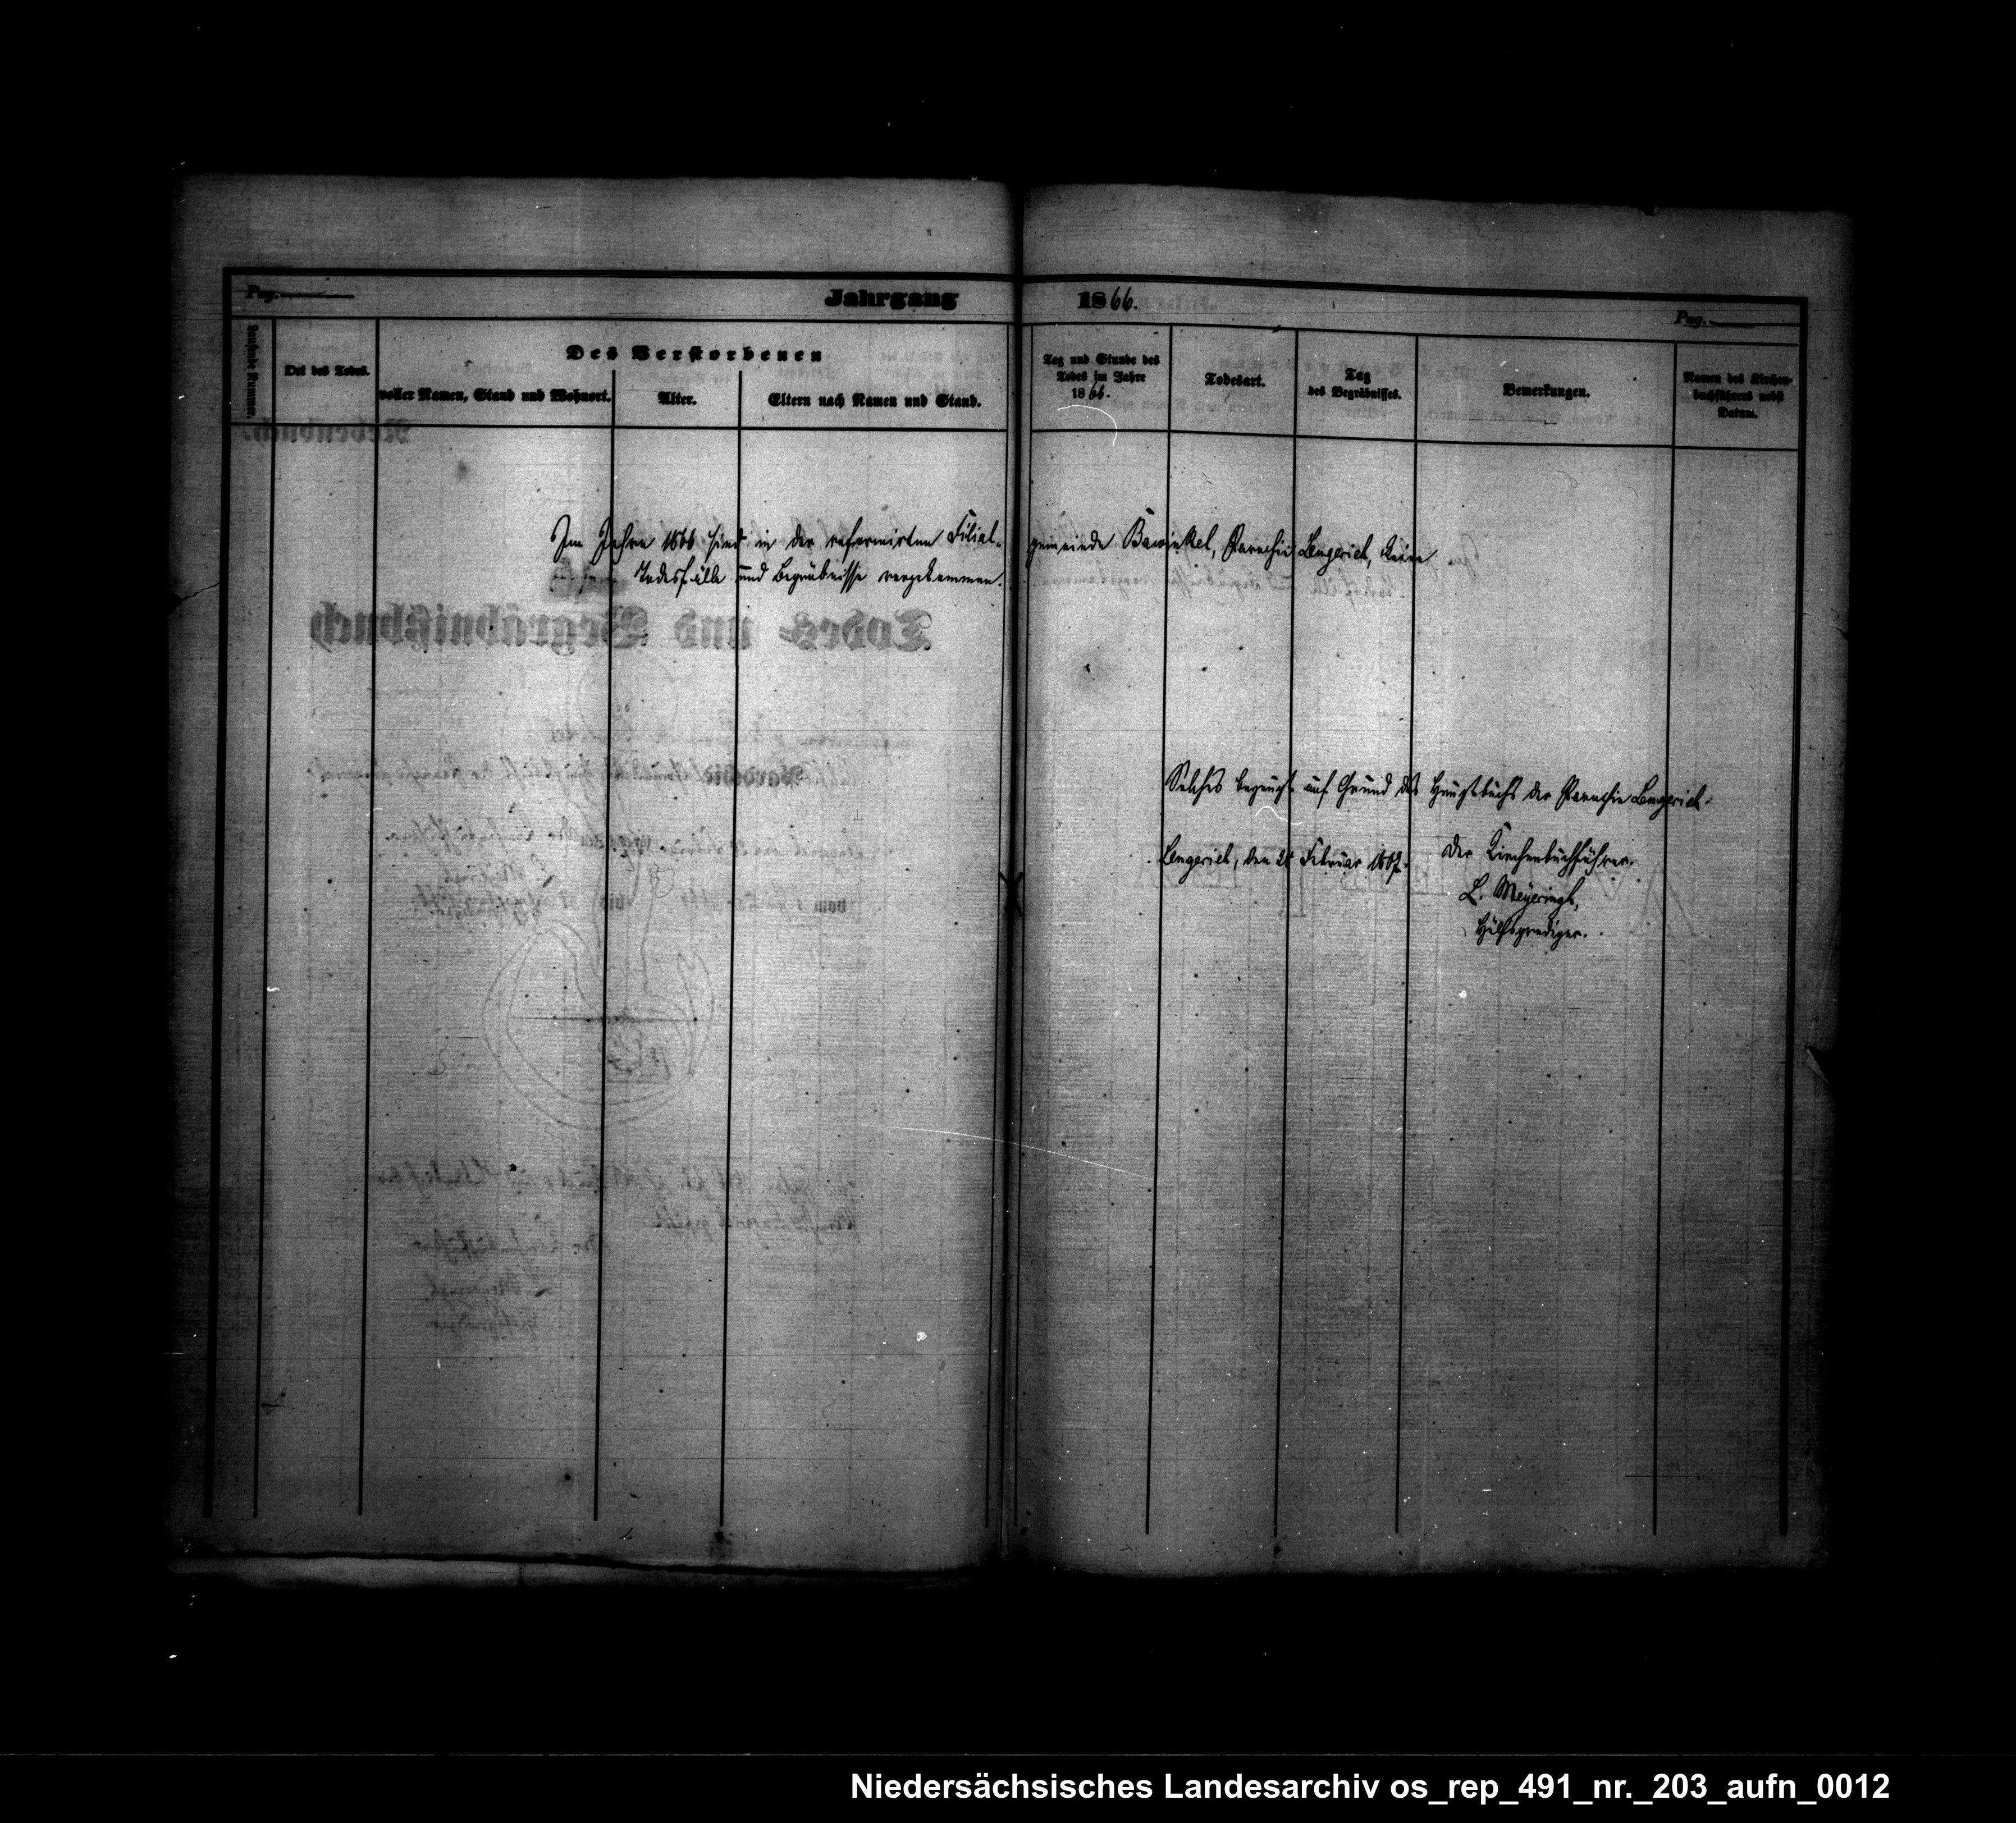 Pag.
Jahrgang 1866.
Pag.
Laufende Nummer.
Ort des Todes.
Des Verstorbenen
voller Namen, Stand und Wohnort.
Alter.
Eltern nach Namen und Stand.
Tag und Stunde des
Todes im Jahre
1866.
Todesart.
Tag
des Begräbnisses.
Bemerkungen.
Namen des Kirchen-
buchführers nebst
Datum.
Im Jahre 1866 sind in der reformirten Filial-gemeinde Bawinkel, Parochie Lengerich, keine
Todesfälle und Begräbnisse vorgekommen.
Solches bezeugt auf Grund des Hauptbuchs der Parochie Lengerich.
Lengerich, den Februar 1867.
Der Kirchenbuchführer.
L. Meyeringh,
Hülfsprediger.
Nebenbuch.
Todes- und Begräbnißbuch
Parochie
vom
bis
Niedersächsisches Landesarchiv os_rep_491_nr._203_aufn_0012